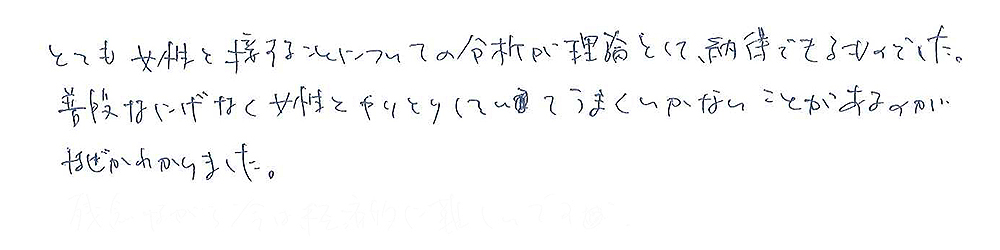 とても女性と接することについての分析が理論として、納得できるものでした。
普段なにげなく女性とやりとりしていてうまくいかないことがあるのかが
なぜかわかりました。